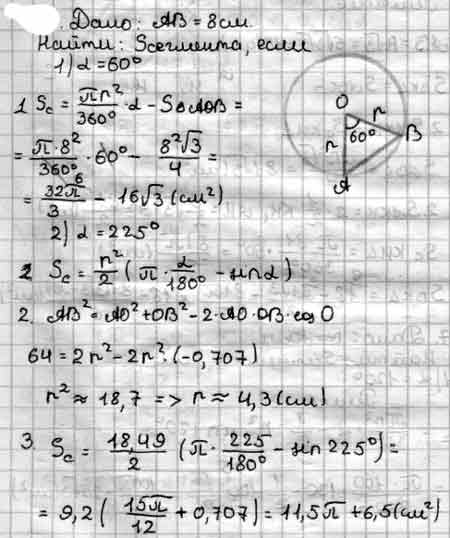 Дано: AB = 8 см.
Найти: Sсегмента, если
1) α = 60°
1 Sc = πr²/360° · α - SΔAOB =
= π·8²/360° · 60° - 8²√3/4 =
6
= 32π/3 - 16√3 (см²)
2) α = 225°
2 Sc = r²/2 (π · α/180° - sin α)
2. AB² = AO² + OB² - 2·AO·OB·cos O
64 = 2r² - 2r²·(-0,707)
r² ≈ 18,7 => r ≈ 4,3 (см)
3. Sc = 18,49/2 (π · 225/180° - sin 225°) =
= 9,2 (15π/12 + 0,707) = 11,5π + 6,5 (см²)
O
r
60°
B
r
A